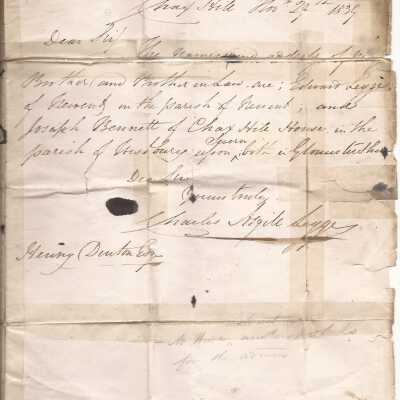 Chax Hill Nov 24th 1839
Dear Sir
The Names and address of my
Brother and Brother in Law are; Edward Legge
of Newent in the parish of Newent; and
Joseph Bennett of Chax Hill House in the
parish of Westbury upon Severn, both in Gloucestershire
Dear Sir
Yours truly
Charles Legge
Henry Denton Esq
for the